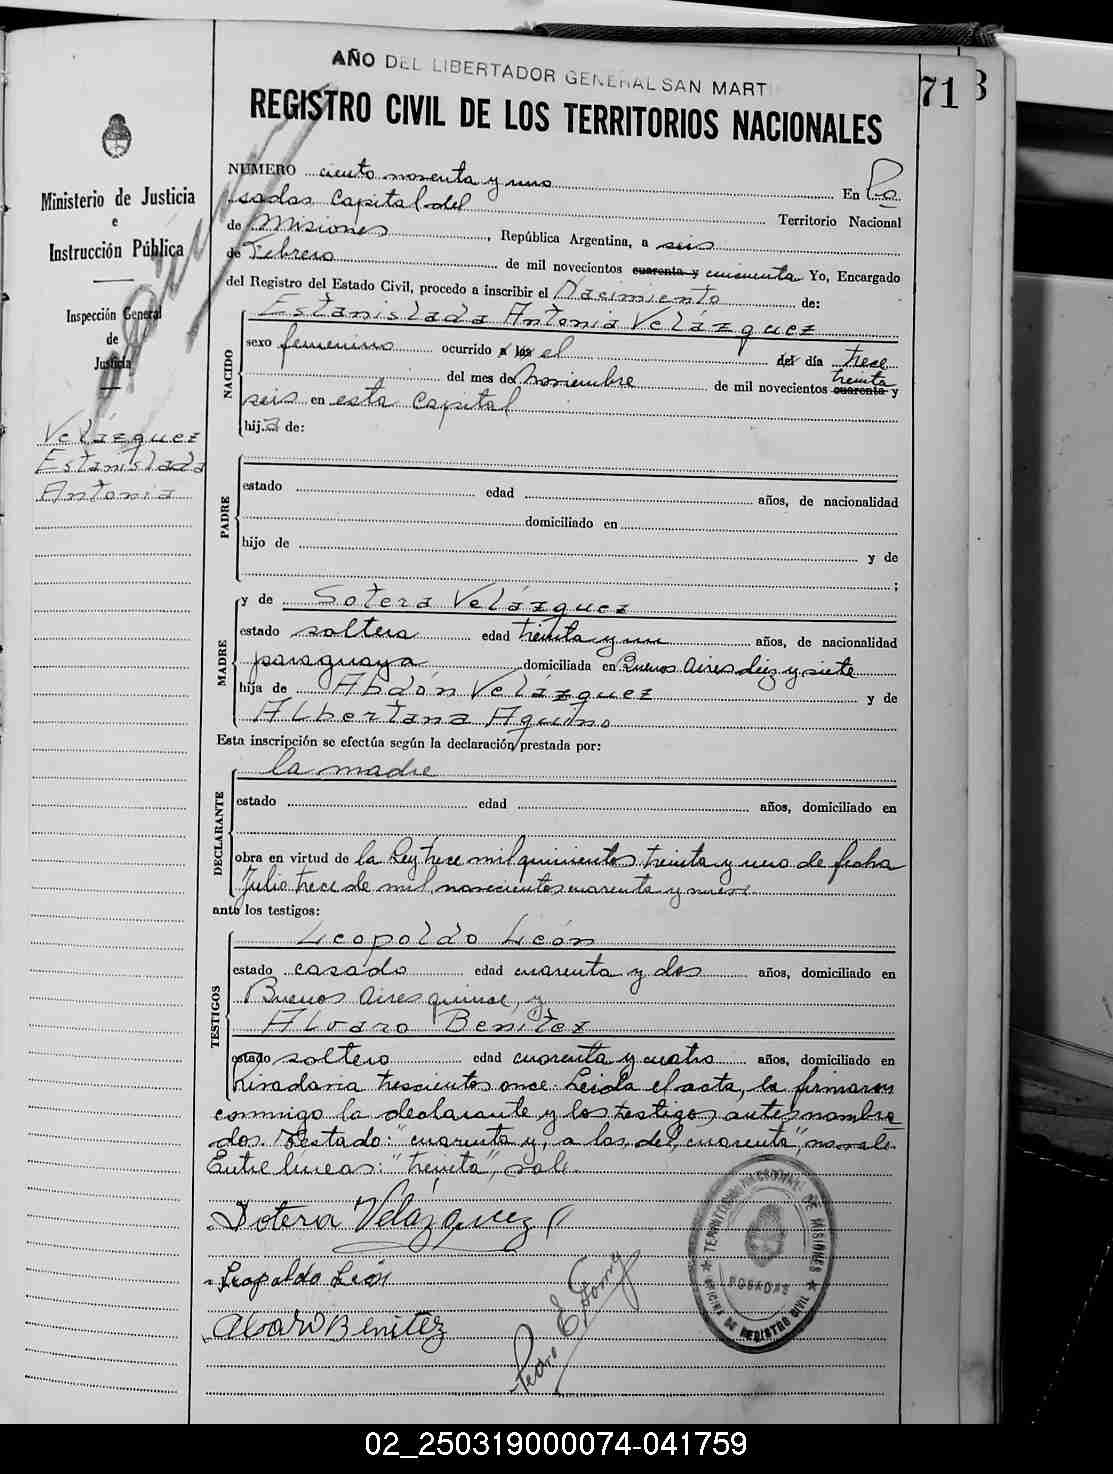 AÑO DEL LIBERTADOR GENERAL SAN MARTI
71 3
REGISTRO CIVIL DE LOS TERRITORIOS NACIONALES
Ministerio de Justicia
e
Instrucción Pública
Inspección General
de
Justicia
Velázquez
Estanislada
Antonia
NUMERO ciento noventa y uno En Po
sadas Capital del Territorio Nacional
de Misiones, República Argentina, a seis
de Febrero de mil novecientos cuarenta y cincuenta Yo, Encargado
del Registro del Estado Civil, procedo a inscribir el Nacimiento de:
NACIDO
Estanislada Antonia Velázquez
sexo femenino ocurrido a las el del día trece
treinta
del mes de Noviembre de mil novecientos cuarenta y
seis en esta Capital
hija de:
PADRE
estado edad años, de nacionalidad
domiciliado en
hijo de y de
;
MADRE
y de Sotera Velázquez
estado soltera edad treinta y un años, de nacionalidad
paraguaya domiciliada en Buenos Aires diez y siete
hija de Abdón Velázquez y de
Albertana Aquino
Esta inscripción se efectúa según la declaración prestada por:
DECLARANTE
la madre
estado edad años, domiciliado en
obra en virtud de la Ley trece mil quinientos treinta y uno de fecha
Julio trece de mil novecientos cuarenta y nueve
ante los testigos:
TESTIGOS
Leopoldo León
estado casado edad cuarenta y dos años, domiciliado en
Buenos Aires quince, y
Alvaro Benitez
estado soltero edad cuarenta y cuatro años, domiciliado en
Rivadavia trescientos once. Leida el acta, la firmaron
conmigo la declarante y los testigos antes nombra
dos. Testado: "cuarenta y, a las, del, cuarenta", no vale.
Entre líneas: "treinta", vale.
Sotera Velázquez
Leopoldo León
Alvaro Benitez
Pedro E.
TERRITORIO NACIONAL DE MISIONES
POSADAS
OFICINA DE REGISTRO CIVIL
02_250319000074-041759